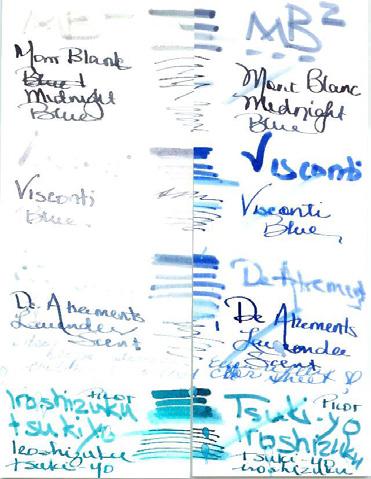 MB
Mont Blank
Blue
Midnight
Blue
Visconti
Blue
De Atrements
Lavender
Scent
Pilot
Iroshizuku
tsukiyo
Iroshizuku
tsuki-yo
MB2
Mont Blanc
Midnight
Blue
Visconti
Visconti
Blue
De Atrements
De Atrements
Lavender
Scent
Pilot
Tsuki-yo
Iroshizuku
tsuki-yo
iroshizuku